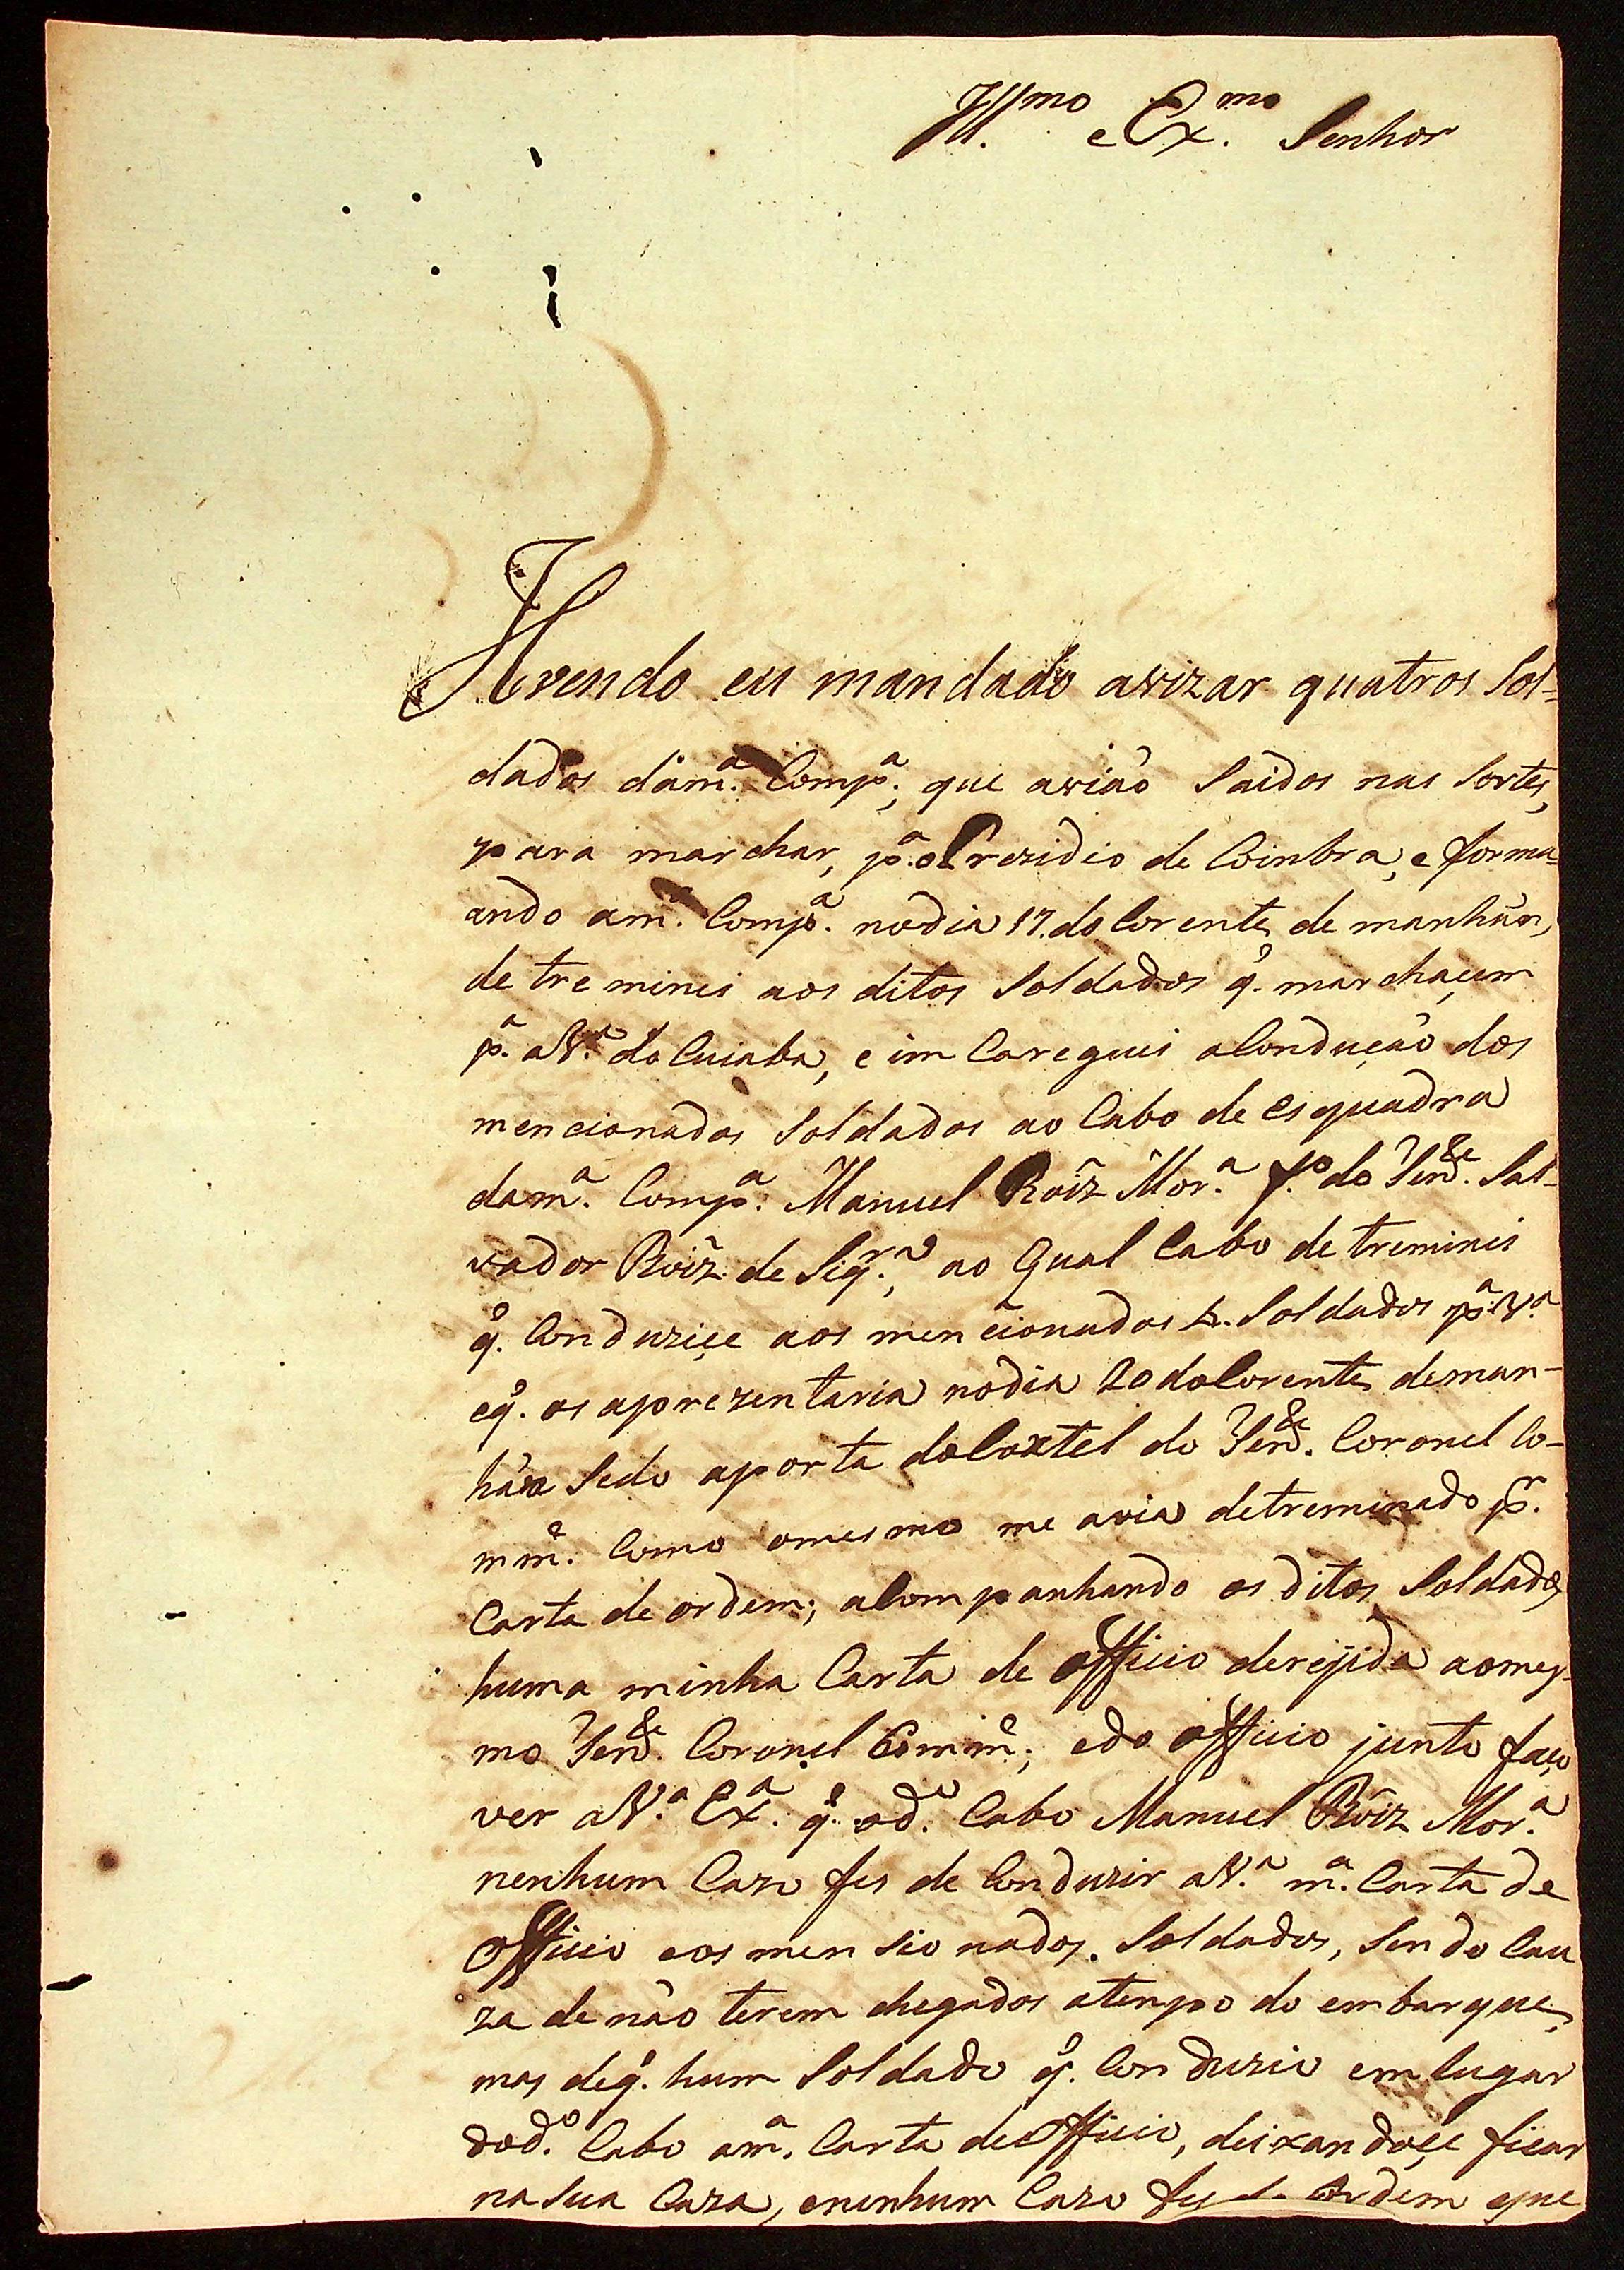 Ill.mo e Ex.mo Senhor
Avendo eu mandado avizar quatros Sol-
dados dam.a Comp.a, que avião Saidos nas Sortes,
para marchar, p.a o Prezidio de Coinbra, e forma-
ando am.a Comp.a nodia 17. do Corente, de manhãn,
detreminei aos ditos Soldados q. marchaçem
p.a aV.a do Cuiaba, e imCareguei aConducão dos
mencionados Soldados ao Cabo de esquadra
dam.a Comp.a Manuel Roîz Mor.a f.o do Ten.de Sal-
vador Roîz de Siq.ra, ao Qual Cabo detreminei
q. Conduziçe aos mencionados 4. Soldados p.a V.a
eq. os aprezentaria nodia 20 doCorente, deman-
hãn Sedo aporta doCoxtel do Ten.de Coronel Co-
mm.e Como omesmo me avia detreminado p.r
Carta de ordem; aCompanhando os ditos Soldados
huma minha Carta de officio derejida aomes-
mo Ten.de Coronel Comm.e; edo officio junto faço
ver aV.a Ex.a q. od.o Cabo Manuel Roîz Mor.a
nenhum Cazo fes de Conduzir aV.a m.a Carta de
Officio eos mensionados Soldados, Sendo Cau
za denão terem chegados atempo do embarque,
mas deq. hum Soldado q. Conduzio em lugar
dod.o Cabo am.a Carta deOfficio, deixandoçe ficar
naSua Caza, enenhum Cazo fes da Ordem que